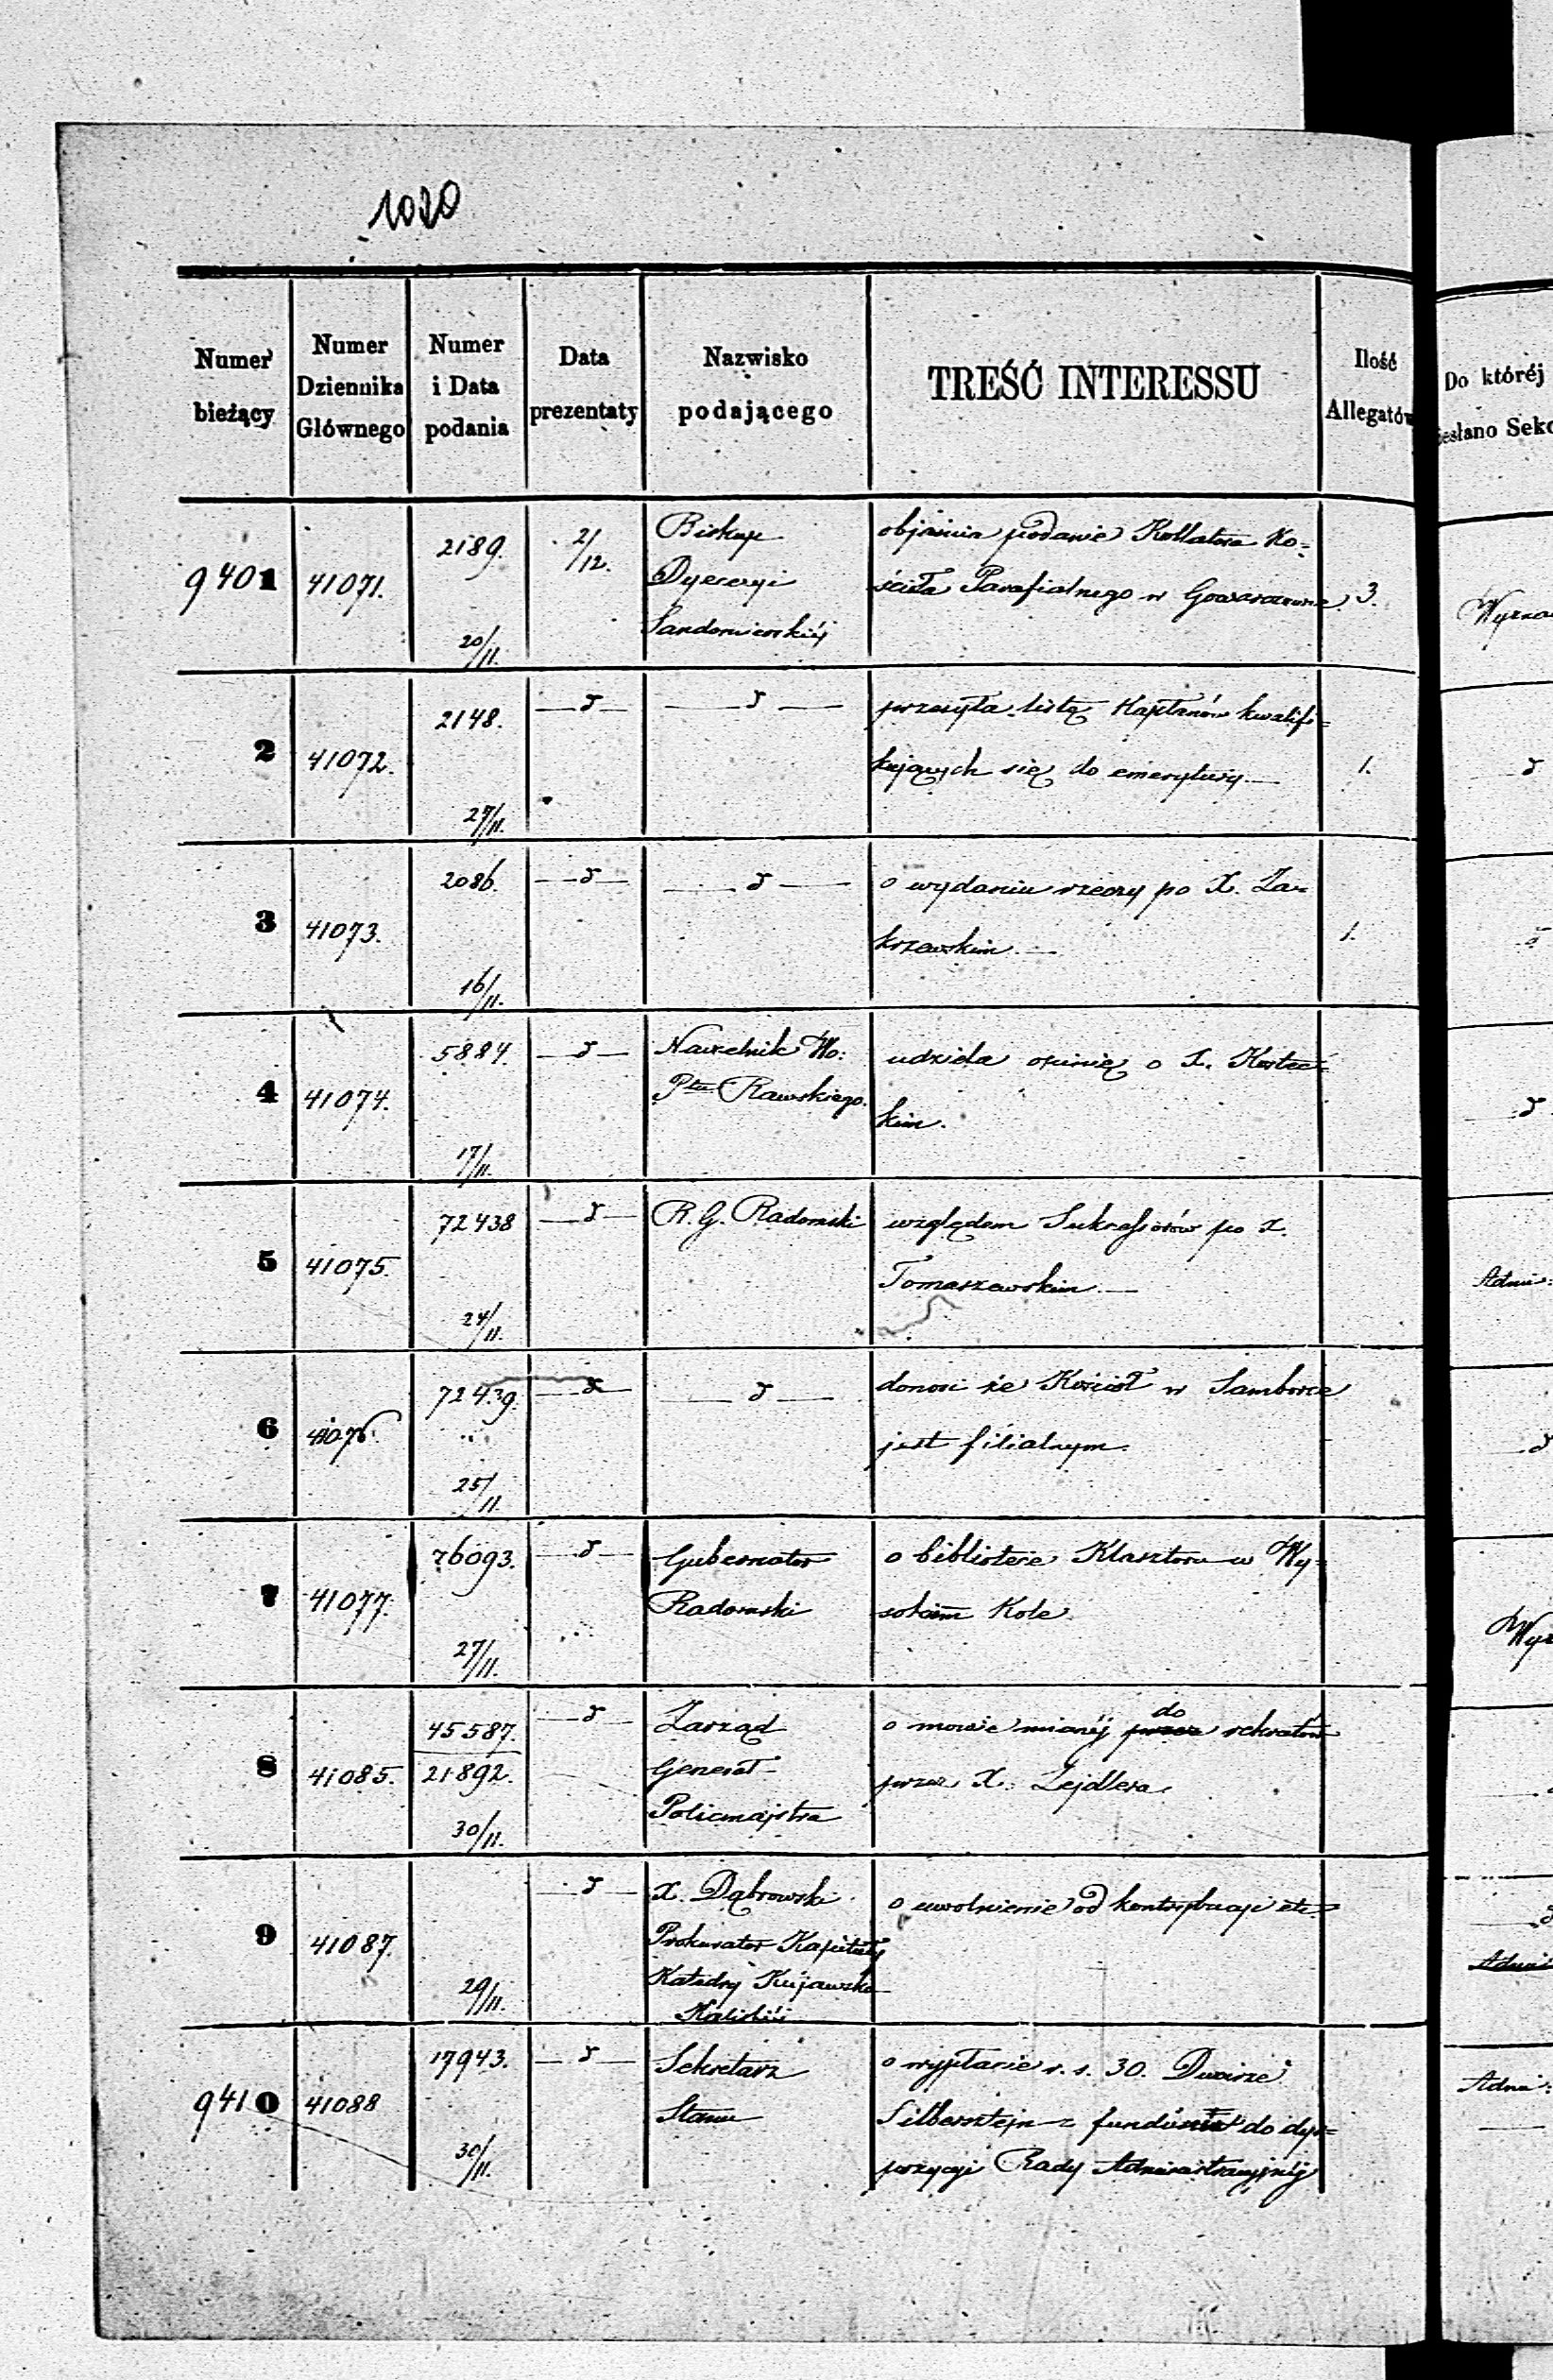 1020
Numer bieżący | Numer Dziennika Głównego | Numer i Data podania | Data prezentaty | Nazwisko podającego | TREŚĆ INTERESSU | Ilość Allegatów | Do któréj
esłano Sekc
9401 | 41071. | 2189. 20/11. | 2/12. | Biskup | objaśnia podanie Kollatora Ko=
Dyecezyi | ścioła Parafialnego w Gowarczowie | 3.
Sandomierskiéj
2 | 41072. | 2148. 27/11. | — d — | — d — | przesyła listę Kapłanów kwalifi=
kujących się do emerytury.— | 1. | d
3 | 41073. | 2086. 16/11. | — d — | — d — | o wydaniu rzeczy po X. Za=
krzewskim.— | 1. | d
4 | 41074. | 5884. 17/11. | — d — | Naczelnik Wo: | udziela opinię o X. Kostec=
Ptu Rawskiego. | kim. | d
5 | 41075. | 72438 24/11. | — d — | R. G. Radomski | względem Sukcessorów po X.
Tomaszewskim.— | Admi:
6 | 41076. | 72439. 25/11. | — d — | — d — | donosi że Kościół w Samborce
jest filialnym. | d
7 | 41077. | 76093. 27/11. | — d — | Gubernator | o bibliotece Klasztoru w Wy=
Radomski | sokiem Kole.
8 | 41085. | 45587. 21892. 30/11. | — d — | Zarząd | o mowie mianéj do przez rekrutów
Generał | przez X. Zejdlera.
Policmajstra
9 | 41087. | 29/11. | — d — | X. Dąbrowski | o uwolnienie od kontrybucyi etc.
Prokurator Kapituły
Katedry Kujawsko
Kaliskiéj
9410 | 41088 | 17943. 30/11. | — d — | Sekretarz | o wypłacie r. s. 30. Dwoirze
Stanu | Silbersztejn z funduszu do dys=
pozycyi Rady Administracyjnéj | Admi: